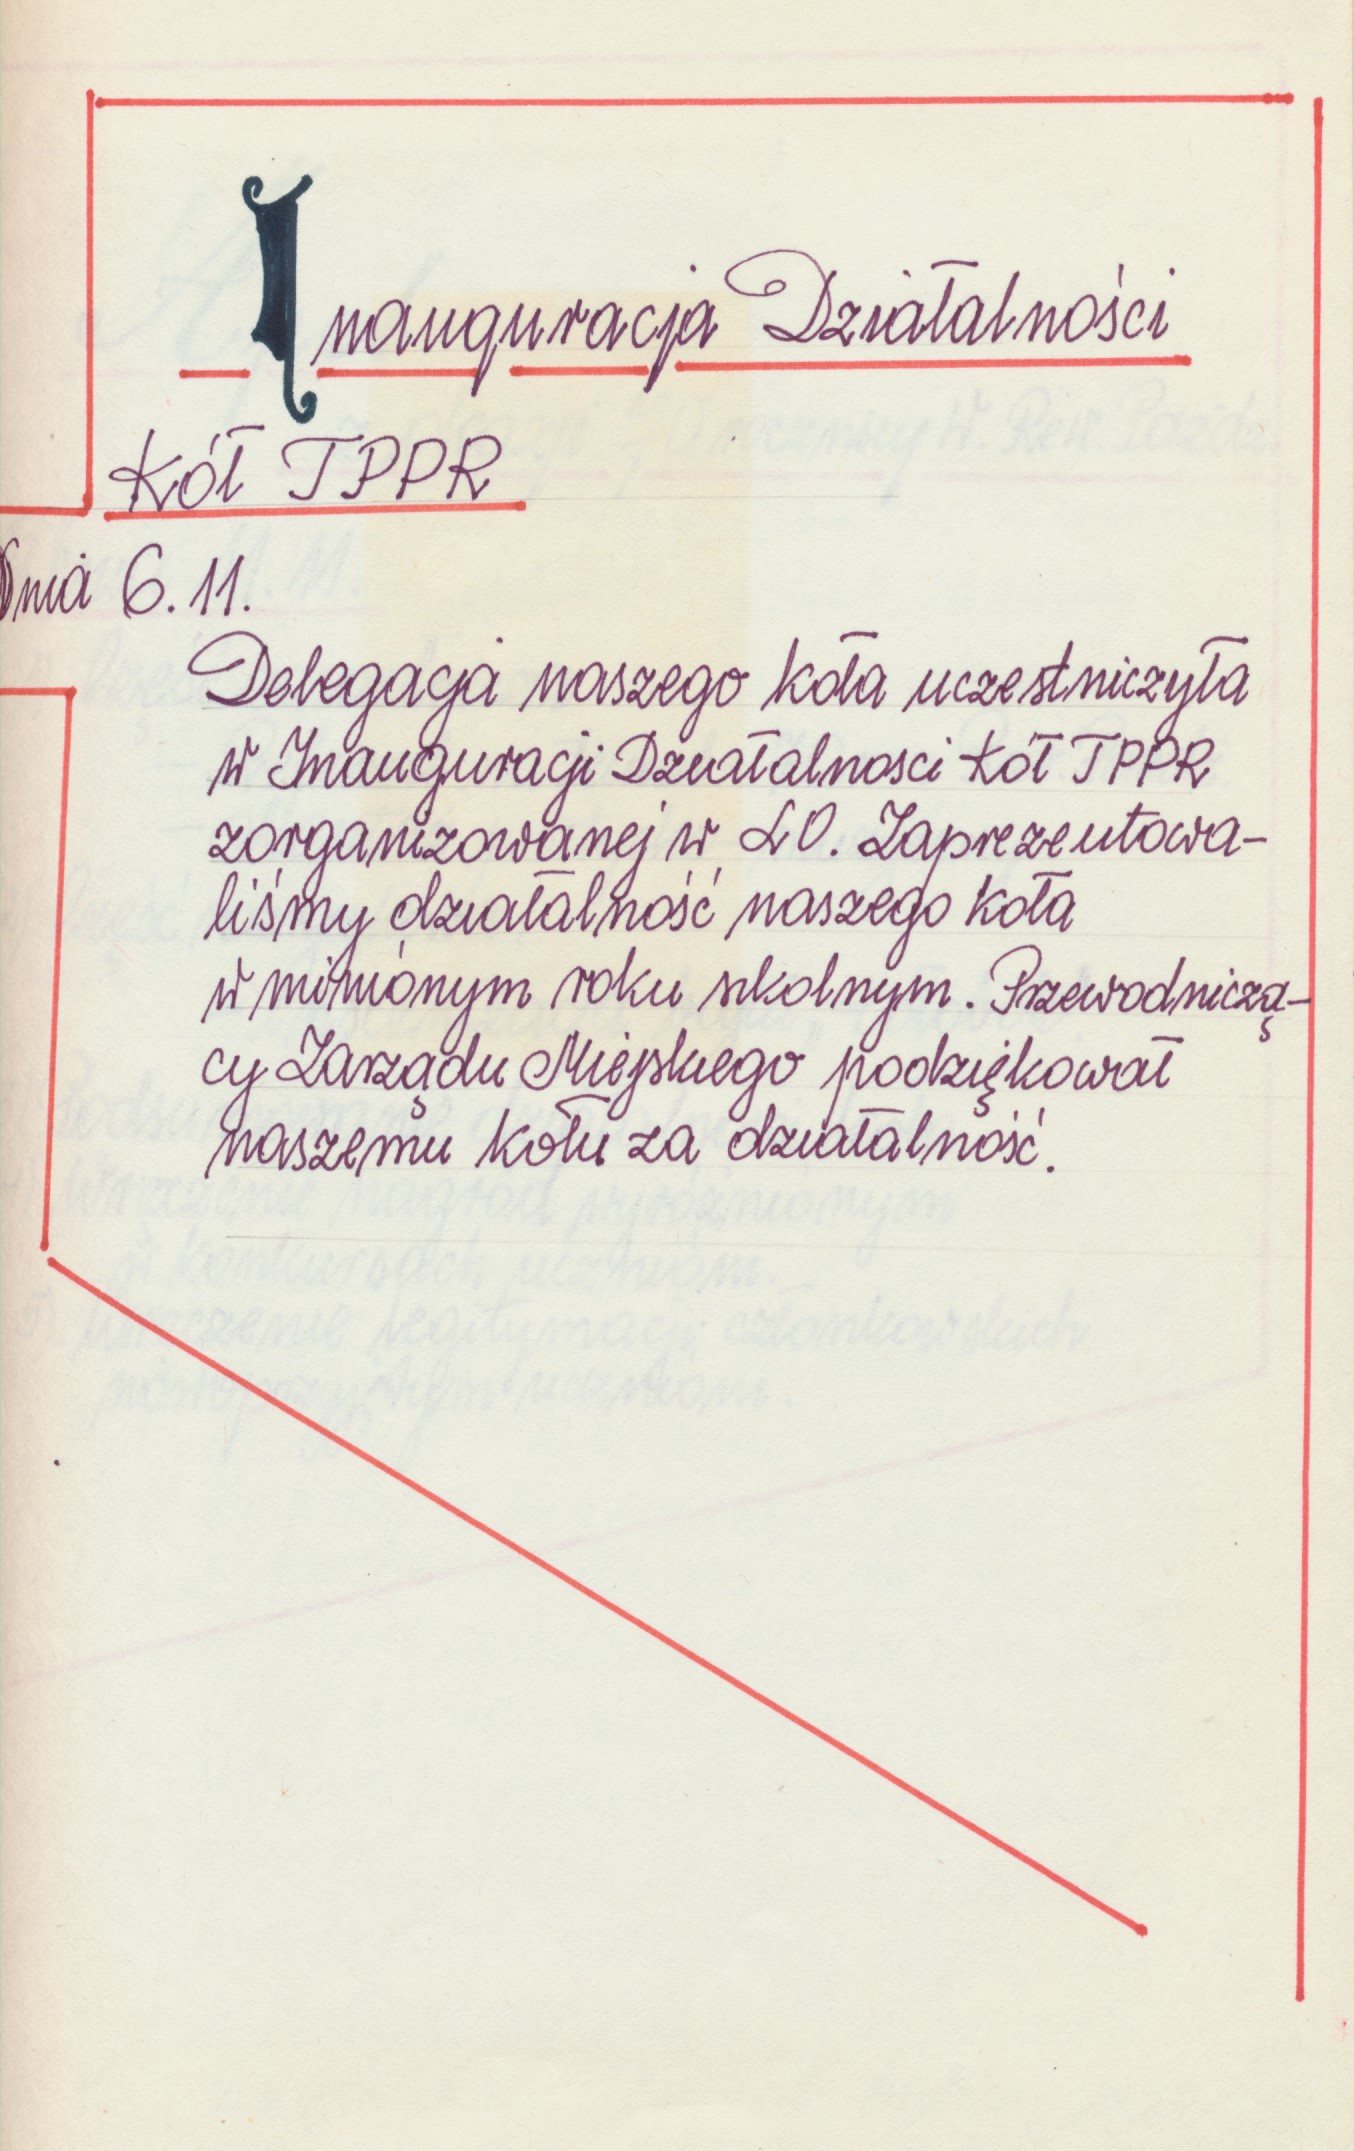 Inauguracja Działalności
Kół TPPR
Dnia 6.11.
Delegacja naszego koła uczestniczyła
w Inauguracji Działalnosci Kół TPPR
zorganizowanej w LO. Zaprezentowa-
liśmy działalność naszego koła
w minionym roku szkolnym. Przewodniczą-
cy Zarządu Miejskiego podziękował
naszemu kołu za działalność.